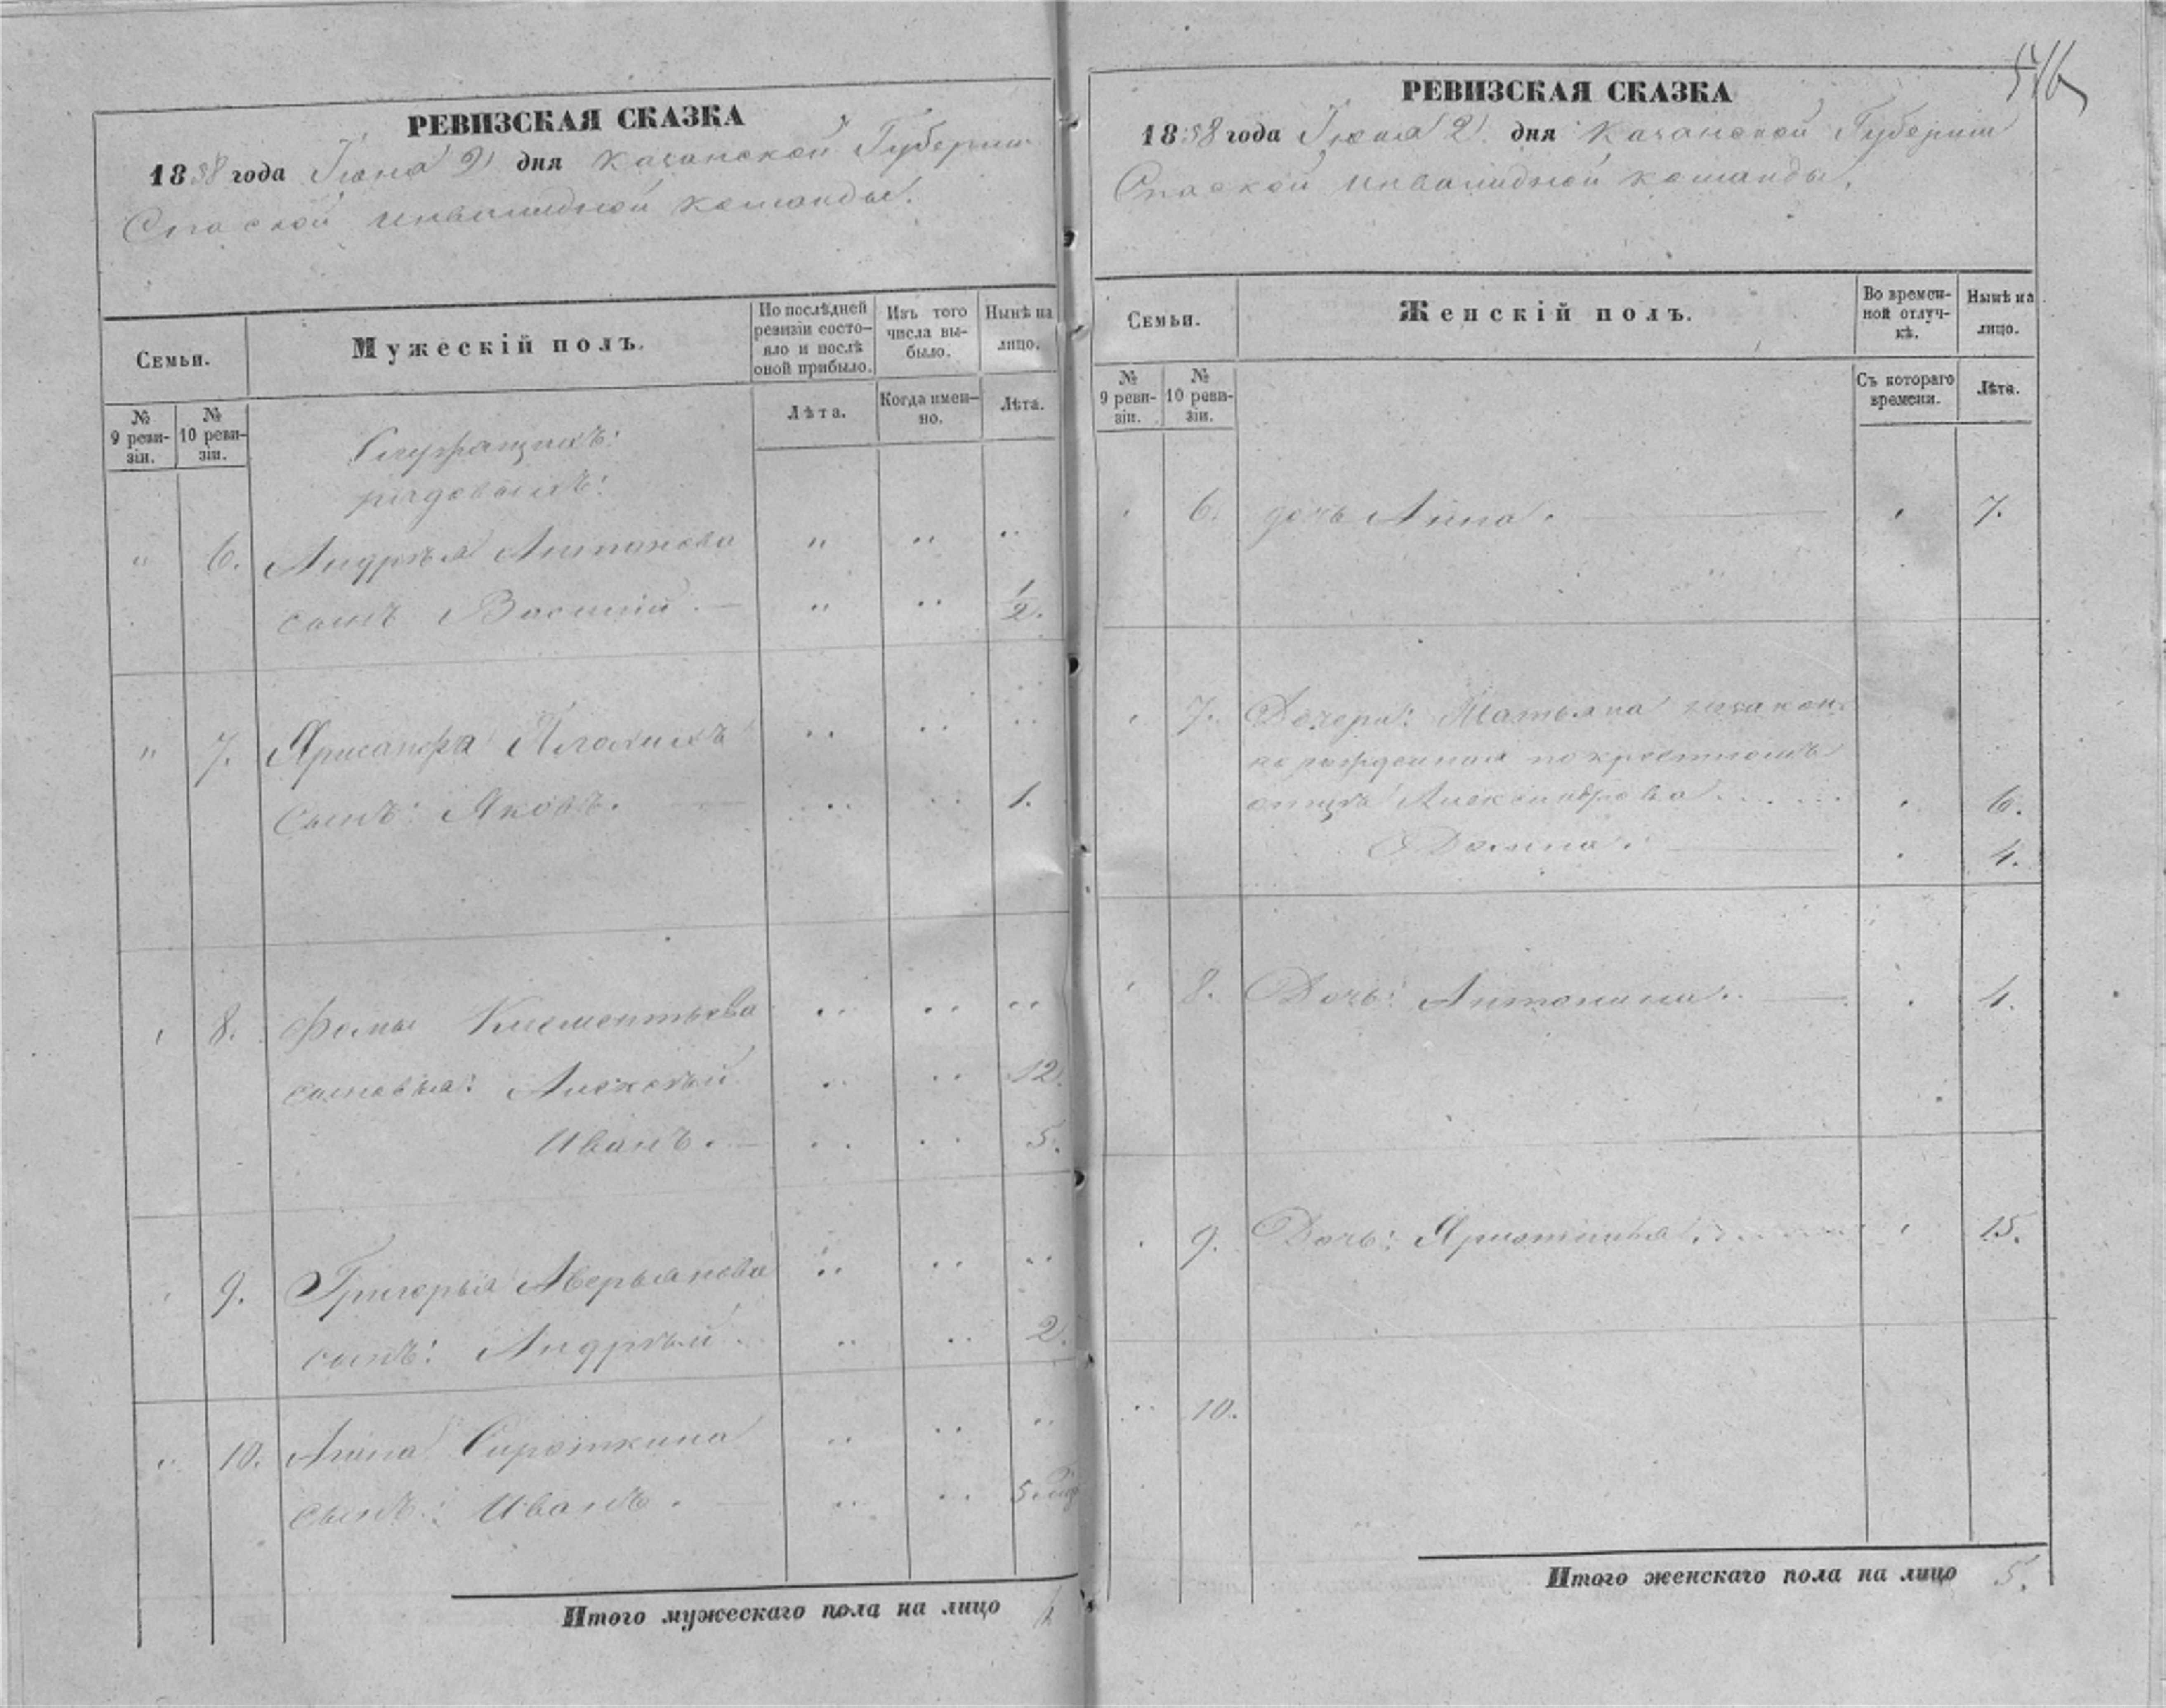 РЕВИЗСКАЯ СКАЗКА
1858 года Іюня 2 дня Казанской Губерніи
Спаской инвалидной команды.
Семьи.
Мужескій полъ.
По послѣдней ревизіи состояло и послѣ оной прибыло.
Изъ того числа выбыло.
Нынѣ на лицо.
№ 9 ревизіи.
№ 10 ревизіи.
Лѣта.
Когда именно.
Лѣта.
Служащихъ:
рядовыхъ:
" 6. Андрѣя Антонова " " "
сынъ Василій. — " " 1/2.
" 7. " " "
Сынъ: Яковъ. — " " 1.
" 8. Фомы Клементьева " " "
сыновья: Алексѣй " " 12.
Иванъ. — " " 5.
" 9. Григорья Аверьянова " " "
сынъ: Андрѣй. " " 2.
" 10. Сироткина " " "
сынъ: Иванъ. — " " 5
Итого мужескаго пола на лицо
546
РЕВИЗСКАЯ СКАЗКА
1858 года Іюня 2 дня Казанской Губерніи
Спаской инвалидной команды.
Семьи.
Женскій полъ.
Во временной отлучкѣ.
Нынѣ на лицо.
№ 9 ревизіи.
№ 10 ревизіи.
Съ котораго времени.
Лѣта.
" 6. дочь Анна. — " 7.
" 7. Дочери: Татьяна незакон
но рожденная по крестному
отцу Александрова " 6.
Домна. — " 4.
" 8. Дочь: Антонина. — " 4.
" 9. Дочь: " 15.
" 10.
Итого женскаго пола на лицо 5.